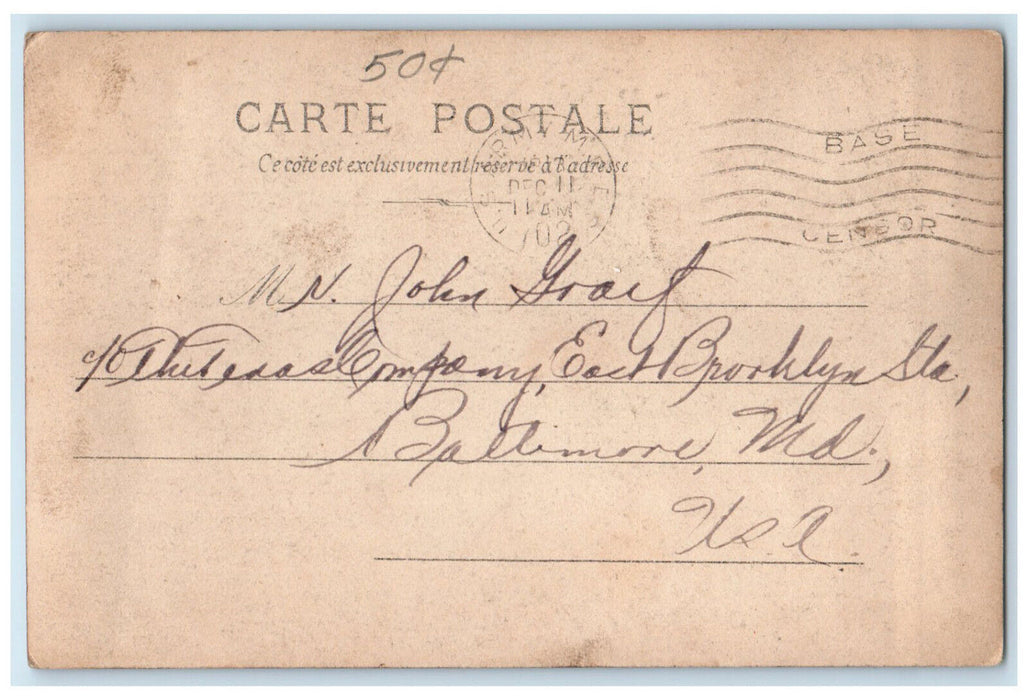 50¢
CARTE POSTALE
Ce côté est exclusivement réservé à l'adresse
DEC 11
11 AM
BASE
CENSOR
Mr. John Graef
c/o The Texas Company, East Brooklyn Sta,
Baltimore, Md.,
U.S.A.